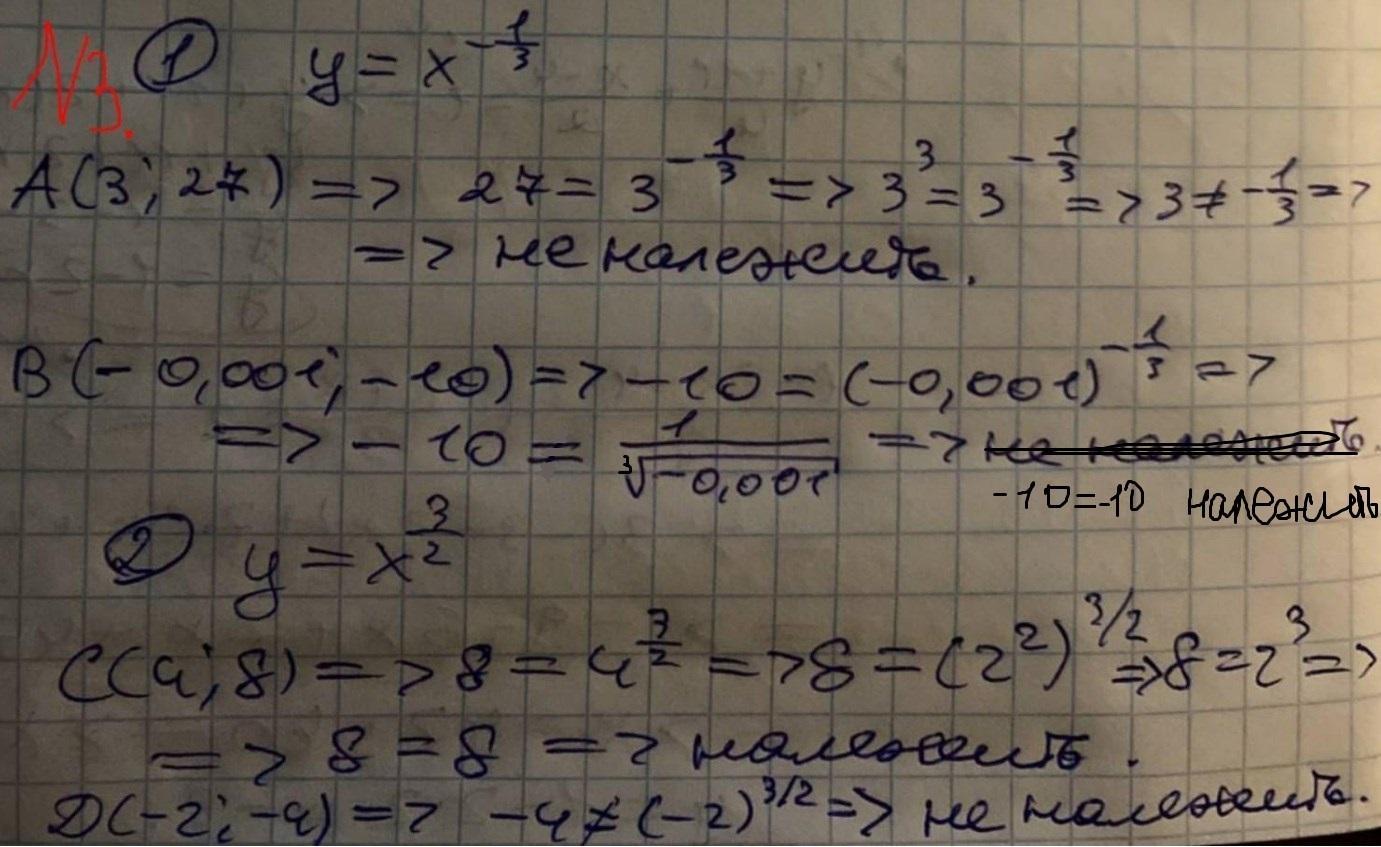 №3. ① y = x^{-1/3}
A(3; 27) => 27 = 3^{-1/3} => 3^3 = 3^{-1/3} => 3 ≠ -1/3 =>
=> не належить.
B(-0,001; -10) => -10 = (-0,001)^{-1/3} =>
=> -10 = 1/∛(-0,001) => не належить.
-10=-10 належить
② y = x^{3/2}
C(4; 8) => 8 = 4^{3/2} => 8 = (2^2)^{3/2} => 8 = 2^3 =>
=> 8 = 8 => належить.
D(-2; -4) => -4 ≠ (-2)^{3/2} => не належить.